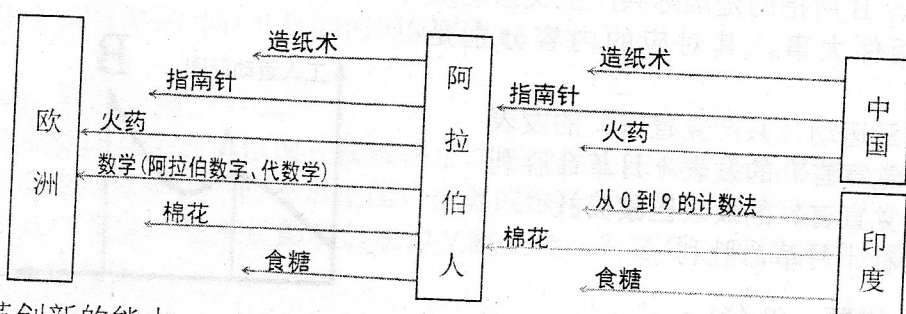 欧洲
造纸术
指南针
火药
数学(阿拉伯数字、代数学)
棉花
食糖
阿拉伯人
造纸术
指南针
火药
从0到9的计数法
棉花
食糖
中国
印度